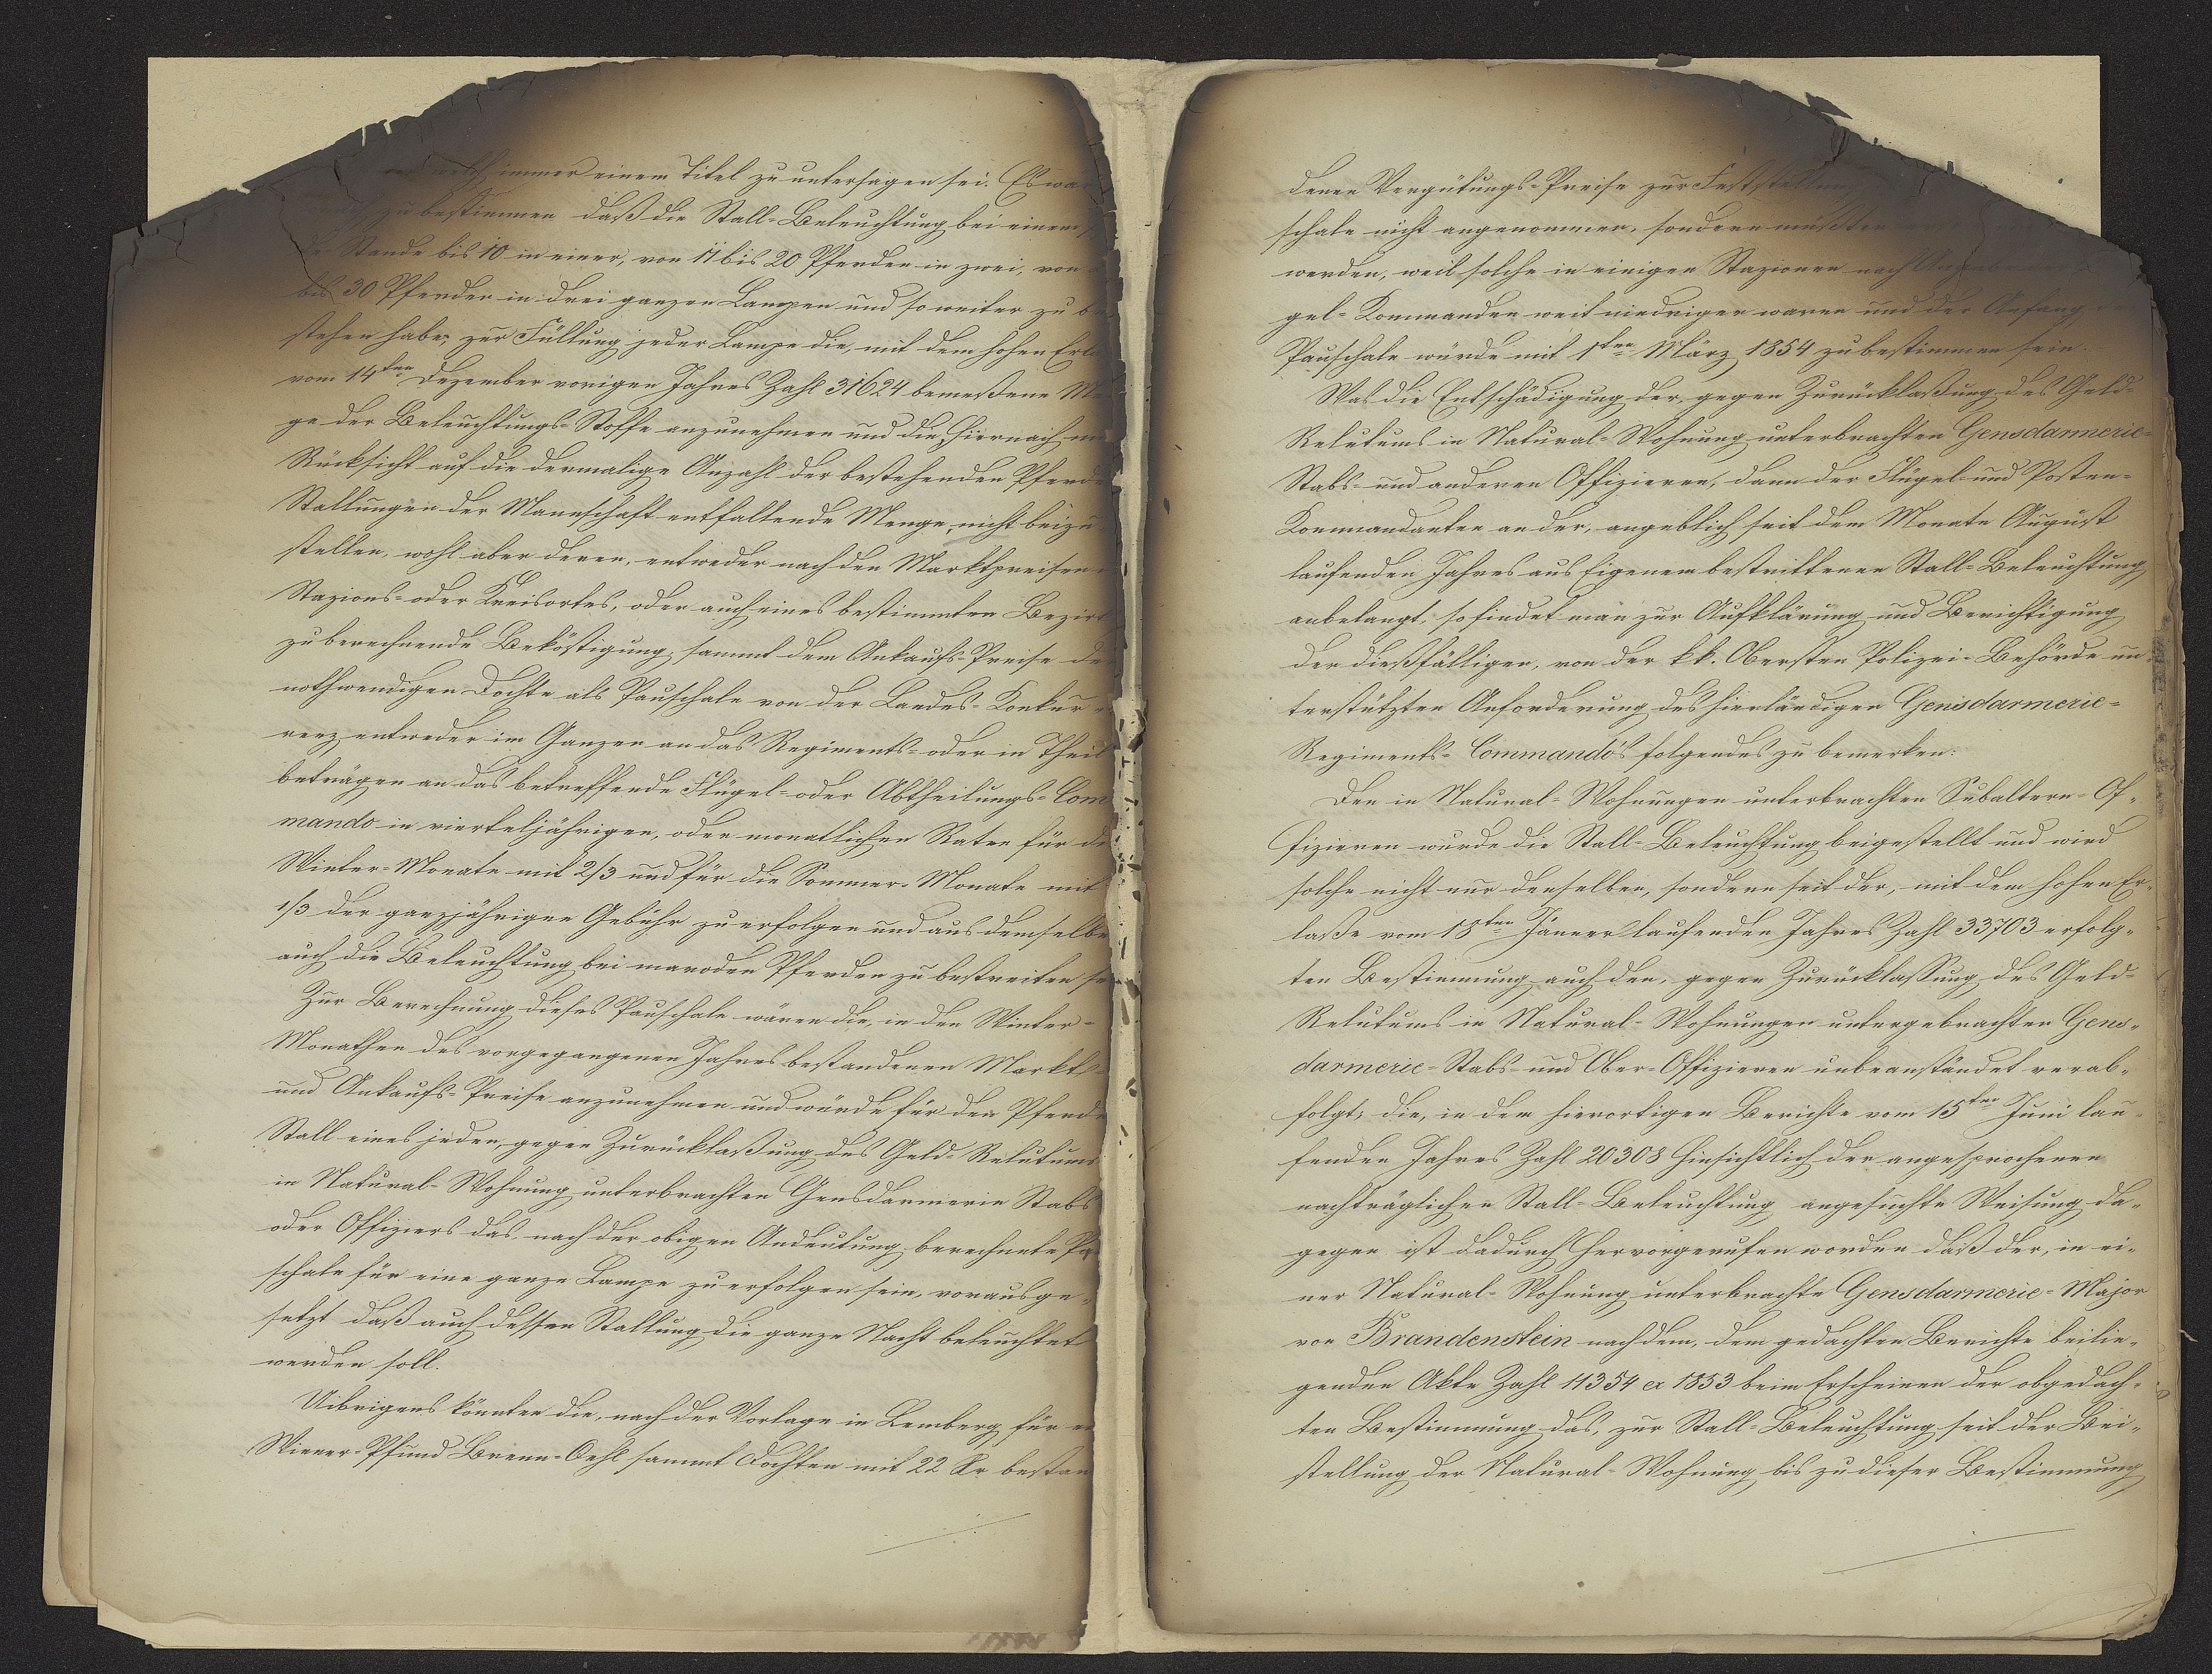 immer einem Titel zu untersagen sei. Es wä
zu bestimmen daß die Stall-Beleuchtung bei einem
Stande bis 10 in einer, von 11 bis 20 Pferden in zwei, von
bis 30 Pferden in drei ganzen Lampen und so weiter zu be
stehen habe; zur Füllung jeder Lampe die, mit dem hohen Erla
vom 14ten Dezember vorigen Jahres Zahl 31624 bemeßene Me
ge der Beleuchtungs-Stoffe anzunehmen und die, hiernach, mi
Rücksicht auf die dermalige Anzahl der bestehenden Pferde
Stallungen der Mannschaft entfallende Menge, nicht beizu
stellen, wohl aber deren, entweder nach den Marktpreisen
Stazions- oder Kreisortes, oder auch eines bestimmten Bezirk
zu berechnende Beköstigung, sammt dem Ankaufs-Preise de
nothwendigen Dochte als Pauschale von der Landes-Konkur
renz entweder im Ganzen an das Regiments- oder in Theil
beträgen an das betreffende Flügel- oder Abtheilungs-Com
mando in vierteljährigen, oder monatlichen Raten für di
Winter-Monate mit 2/3 und für die Sommer-Monate mit
1/3 der ganzjährigen Gebühr zu erfolgen und aus demselbe
auch die Beleuchtung bei maroden Pferden zu bestreiten se
Zur Berechnung dieses Pauschale wären die, in den Winter-
Monathen des vorgegangenen Jahres bestandenen Markts-
und Ankaufs-Preise anzunehmen und würde für den Pferde
Stall eines jeden, gegen Zurücklaßung des Geld-Relutums
in Natural-Wohnung unterbrachten Gensdarmerie Stabs
oder Offiziers das, nach der obigen Andeutung berechnete Pa
schale für eine ganze Lampe zu erfolgen sein, vorausge-
setzt daß auch dessen Stallung die ganze Nacht beleuchtet
werden soll.
Uibrigens könnten die, nach der Vorlage in Lemberg für ei
Wiener-Pfund Brenn-Oehl sammt Dochten mit 22 Kr bestan
denen Vergütungs-Preise zur Feststellung
schale nicht angenommen, sondern müßten
werden, weil solche in einigen Stazionen nach
gel-Kommanden weit niedriger waren und der Anfang
Pauschale würde mit 1ten März 1854 zu bestimmen sein.
Was die Entschädigung der, gegen Zurücklaßung des Geld-
Relutums in Natural-Wohnung unterbrachten Gensdarmerie-
Stabs- und anderen Offizieren, dann der Flügel- und Posten-
Kommandanten an der, angeblich seit dem Monate August
laufenden Jahres aus Eigenem bestrittenen Stall-Beleuchtung
anbelangt, so findet man zur Aufklärung und Berichtigung
der dießfälligen, von der k.k. Obersten Polizei-Behörde un-
terstützten Anforderung des hierländigen Gensdarmerie-
Regiments-Commando's folgendes zu bemerken:
Den in Natural-Wohnungen unterbrachten Subaltern-Of-
fizieren wurde die Stall-Beleuchtung beigestellt und wird
solche nicht nur denselben, sondern seit der, mit dem hohen Er-
laße vom 18ten Jänner laufenden Jahres Zahl 33703 erfolg-
ten Bestimmung auch den, gegen Zurücklassung des Geld-
Relutums in Natural-Wohnungen untergebrachten Gens-
darmerie-Stabs- und Ober-Offizieren unbeanständet verab-
folgt; die, in dem hierortigen Berichte vom 15ten Juni lau-
fenden Jahres Zahl 20308 hinsichtlich der angesprochenen
nachträglichen Stall-Beleuchtung angesuchte Weisung da-
gegen ist dadurch hervorgerufen worden daß der, in ei-
ner Natural-Wohnung unterbrachte Gensdarmerie-Major
von Brandenstein nach dem, dem gedachten Berichte beilie-
genden Akte Zahl 11354 ex 1853 beim Erscheinen der obgedach-
ten Bestimmung das, zur Stall-Beleuchtung seit der Bei-
stellung der Natural-Wohnung bis zu dieser Bestimmung